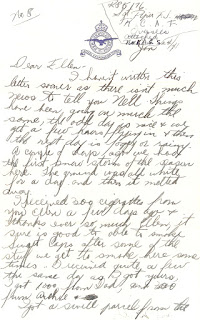 No 8
Dear Ellen:
I haven't written this
letter sooner as there isn't much
news to tell you Nell. Things
have been going on much the
same, the odd day is nice & we
get a few hours flying in & then
the next day is foggy or rainy.
A couple of days ago we had
the first snow storm of the season
here. The ground was all white
for a day and then it melted
away.
I received 300 cigarettes from
you Ellen a few days ago &
thanks ever so much Ellen, it
sure is good to able to smoke
Sweet Caps after some of the
stuff we get to smoke here some
times. I received quite a few
the same day as I got yours,
I got 1000 from Dad, and 300
from
I got a swell parcel from the